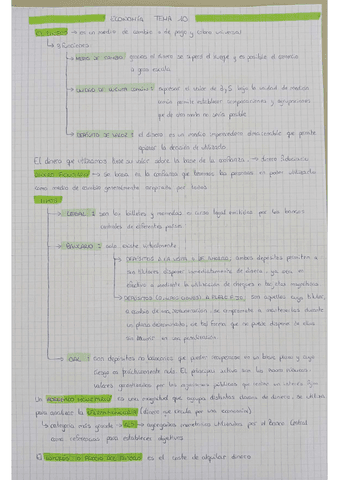 ECONOMÍA TEMA 10
EL DINERO → es un medio de cambio o de pago y cobro universal
↳ 3 funciones:
→ MEDIO DE CAMBIO: gracias al dinero se supera el trueque y es posible el comercio
a gran escala.
→ UNIDAD DE CUENTA COMÚN: expresar el valor de b y S. bajo la unidad de medida
común permite establecer comparaciones y agrupaciones
que de otro modo no sería posible.
→ DEPÓSITO DE VALOR: el dinero es un medio imperecedero almacenable que permite
separar la decisión de utilizarlo.
El dinero que utilizamos tiene su valor sobre la base de la confianza → dinero fiduciario
DINERO FIDUCIARIO → su base es la confianza que tenemos las personas en poder utilizarlo
como medio de cambio generalmente aceptado por todos.
TIPOS
→ LEGAL: son los billetes y monedas de curso legal emitidos por los bancos
centrales de diferentes países.
→ BANCARIO: solo existe virtualmente
→ DEPÓSITOS A LA VISTA Y DE AHORRO: ambos depósitos permiten a
sus titulares disponer inmediatamente de dinero, ya sea en
efectivo o mediante la utilización de cheques o tarjetas magnéticas
→ DEPÓSITOS A PLAZO FIJO: son aquellos cuyo titular,
a cambio de una remuneración, se compromete a mantenerlos durante
un plazo determinado, de tal forma que no puede disponer de ellos
sin incurrir en una penalización.
→ CUASI: son depósitos no bancarios que pueden recuperarse en un breve plazo y cuyo
riesgo es prácticamente nulo. El principal activo son los
valores garantizados por los organismos públicos que
Un AGREGADO MONETARIO es una magnitud que agrupa distintas clases de dinero, se utiliza
para analizar la (dinero que circula por una economía)
↳ categoría más grande → agregados monetarios utilizados por el Banco Central
como referencia para establecer objetivos
El INTERÉS O PRECIO DEL DINERO es el coste de alquilar dinero